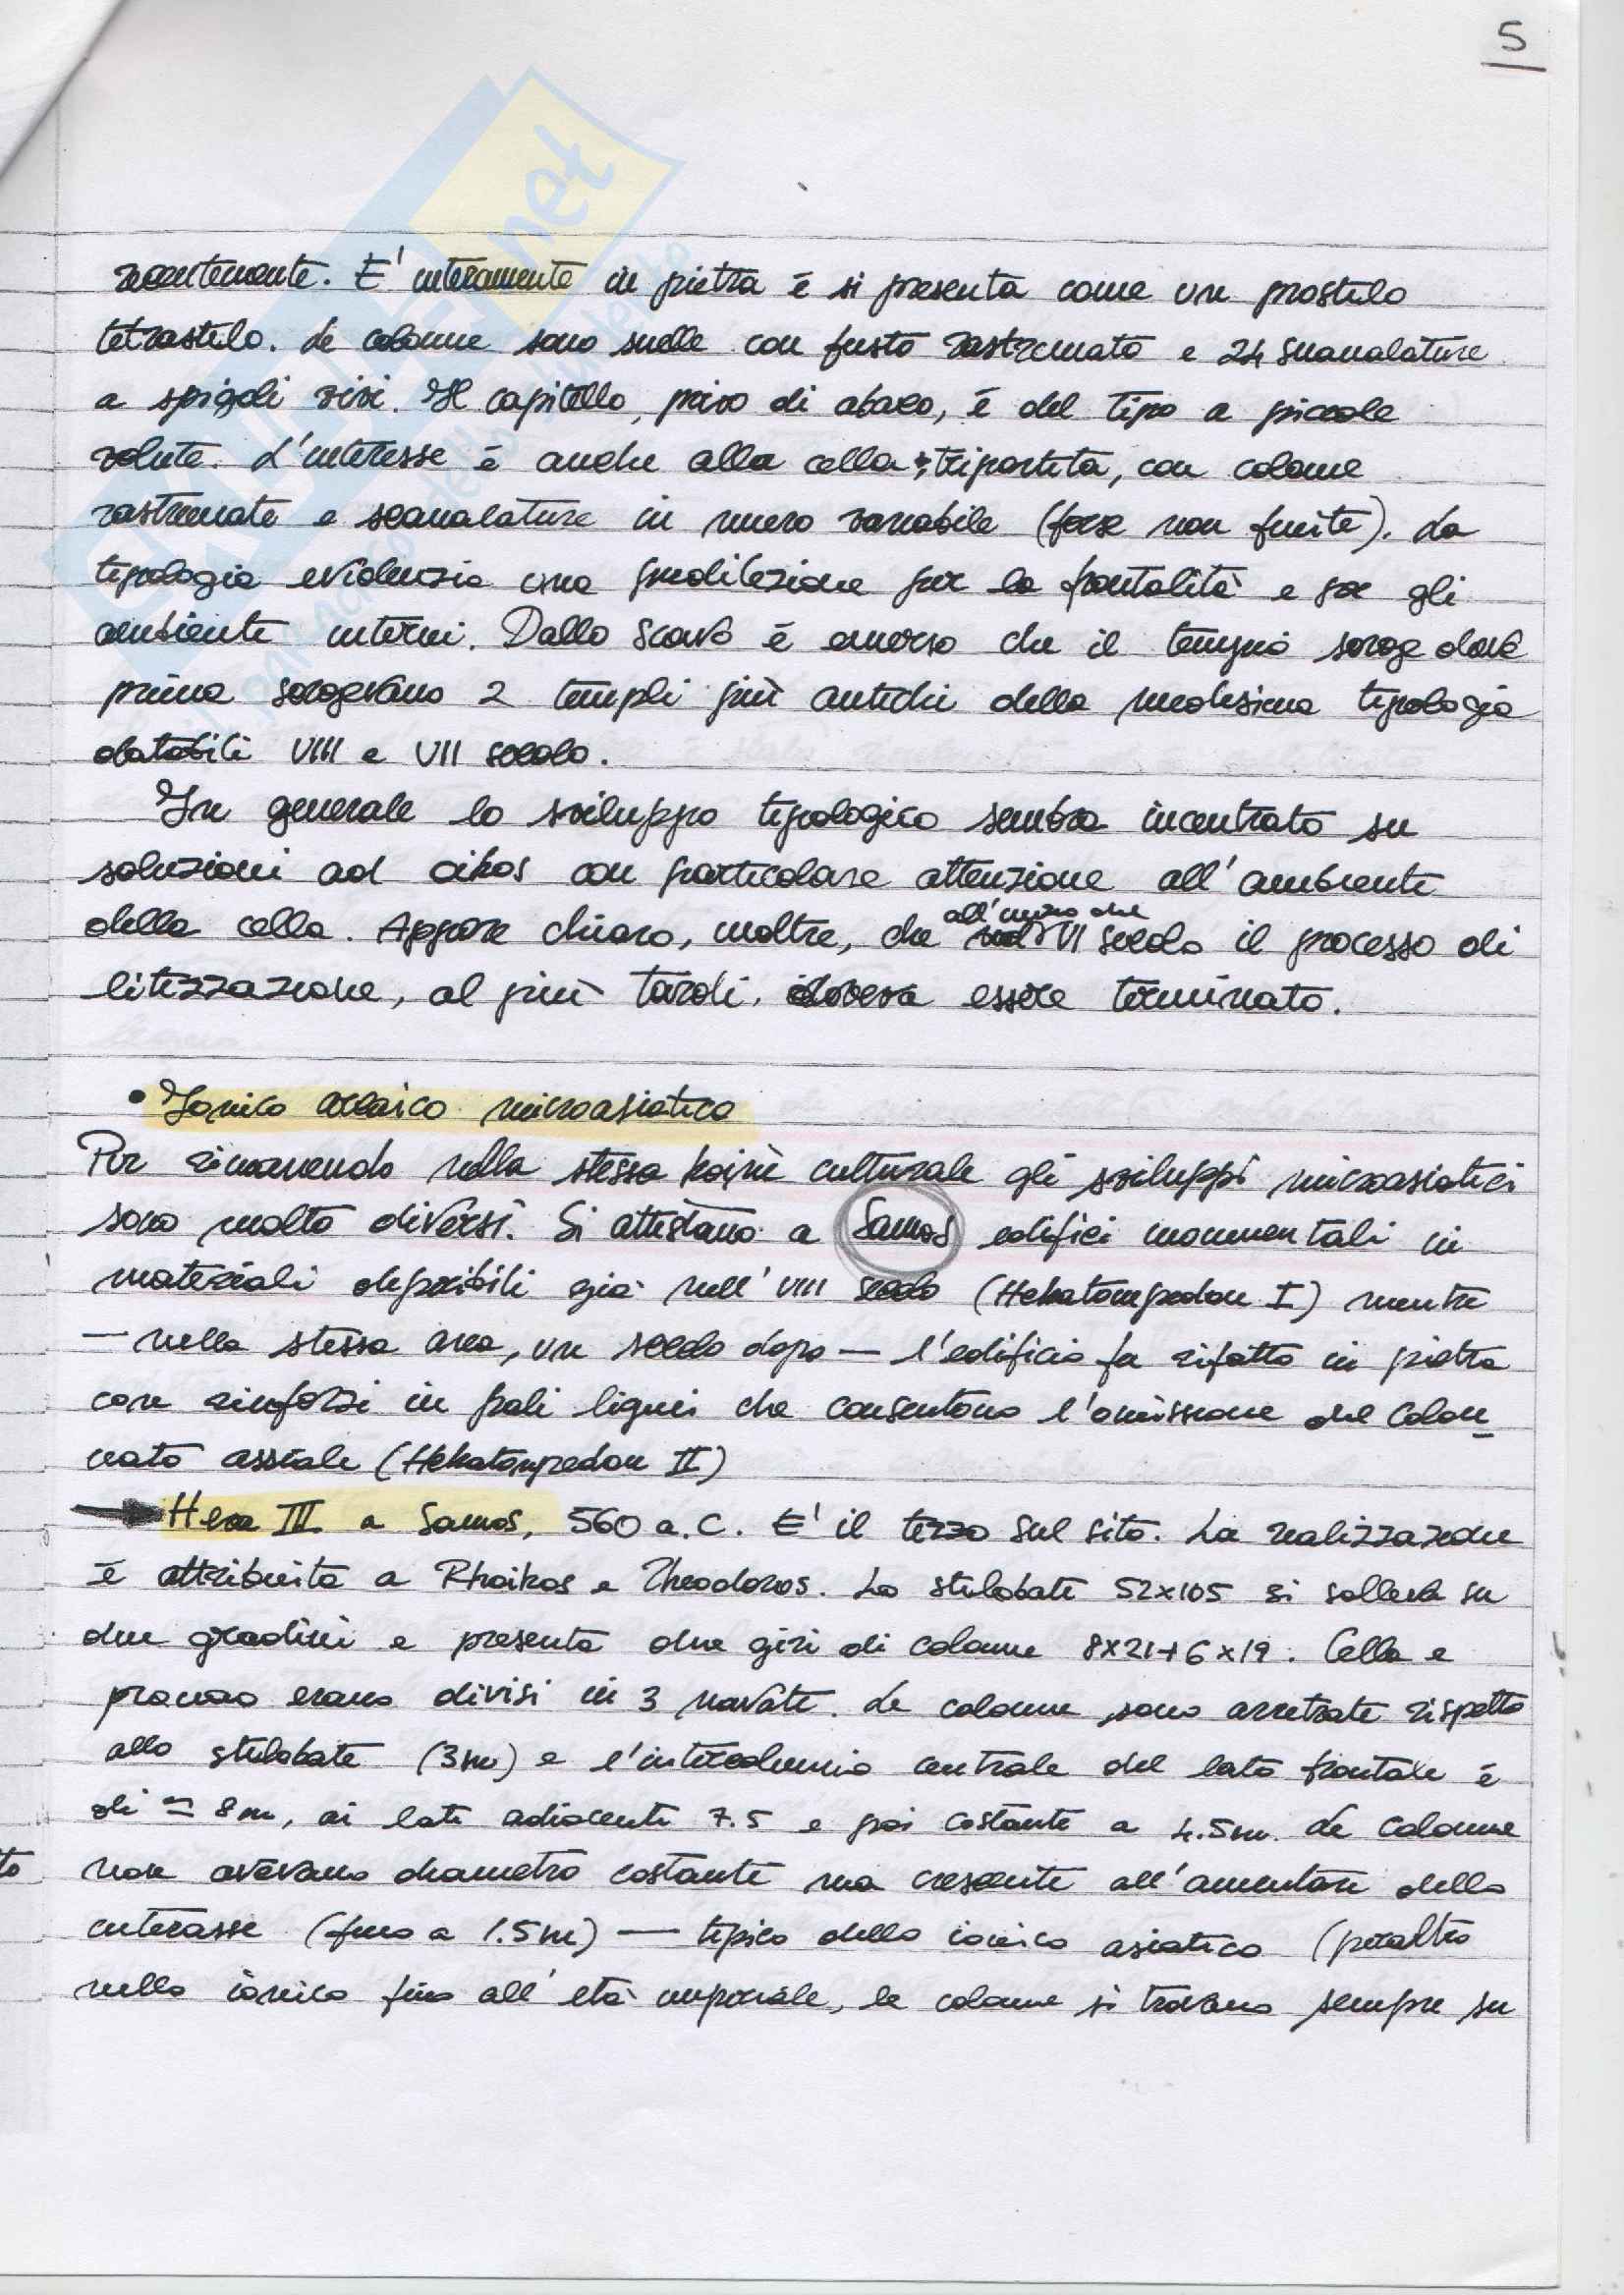 5
recentemente. E' interamente in pietra è si presenta come un prostilo
tetrastilo. Le colonne sono snelle con fusto rastremato e 24 scanalature
a spigoli vivi. Il capitello, privo di abaco, è del tipo a piccole
volute. L'interesse è anche alla cella tripartita, con colonne
rastremate e scanalature in numero variabile (forse non finite). La
tipologia evidenzia una predilezione per la frontalità e per gli
ambienti interni. Dallo scavo è emerso che il tempio sorge dove
prima sorgevano 2 templi più antichi della medesima tipologia
databili VIII e VII secolo.
In generale lo sviluppo tipologico sembra incentrato su
soluzioni ad oikos con particolare attenzione all'ambiente
della cella. Appare chiaro, inoltre, che all'inizio del VI secolo il processo di
litizzazione, al più tardi, doveva essere terminato.
• Ionico arcaico microasiatico
Pur rimanendo nella stessa koinè culturale gli sviluppi microasiatici
sono molto diversi. Si attestano a Samos edifici monumentali in
materiali deperibili già nell'VIII secolo (Hekatompedon I) mentre
— nella stessa area, un secolo dopo — l'edificio fu rifatto in pietra
con rinforzi in pali lignei che consentono l'omissione del colon_
nato assiale (Hekatompedon II)
→ Hera III a Samos, 560 a.C. E' il terzo sul sito. La realizzazione
è attribuita a Rhoikos e Theodoros. Lo stilobate 52x105 si solleva su
due gradini e presenta due giri di colonne 8x21+6x19. Cella e
pronao erano divisi in 3 navate. Le colonne sono arretrate rispetto
allo stilobate (3m) e l'intercolumnio centrale del lato frontale è
di ≃ 8m, ai lati adiacenti 7.5 e poi costante a 4.5m. Le colonne
non avevano diametro costante ma crescente all'aumentare dello
interasse (fino a 1.5m) — tipico dello ionico asiatico (peraltro
nello ionico fino all'età imperiale, le colonne si trovano sempre su
to